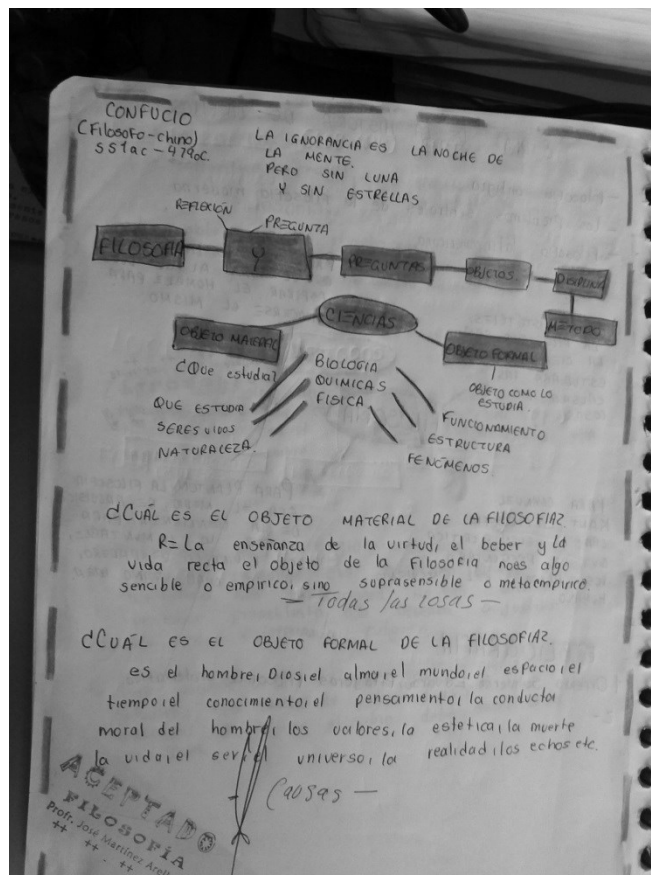 CONFUCIO
(Filosofo-chino)
551ac-479ac.
LA IGNORANCIA ES LA NOCHE DE
LA MENTE.
PERO SIN LUNA
Y SIN ESTRELLAS
REFLEXIÓN
PREGUNTA
FILOSOFIA
Y
PREGUNTAS
OBJETOS
DISCIPLINA
METODO
CIENCIAS
OBJETO MATERIAL
OBJETO FORMAL
¿Que estudia?
BIOLOGIA
QUIMICAS
FISICA
OBJETO COMO LO
ESTUDIA.
QUE ESTUDIA
SERES VIDOS
NATURALEZA.
FUNCIONAMIENTO
ESTRUCTURA
FENÓMENOS
¿CUÁL ES EL OBJETO MATERIAL DE LA FILOSOFIA?
R= La enseñanza de la virtud, el beber y la
vida recta el objeto de la Filosofia noes algo
sencible o empirico, sino suprasensible o metaempirico.
— Todas las cosas —
¿CUÁL ES EL OBJETO FORMAL DE LA FILOSOFIA?
es el hombre, Dios, el alma, el mundo, el espacio, el
tiempo, el conocimiento, el pensamiento, la conducta
moral del hombre, los valores, la estetica, la muerte
la vida, el ser, el universo, la realidad, los echos etc.
Causas —
ACEPTADO
FILOSOFÍA
Profr. José Martínez